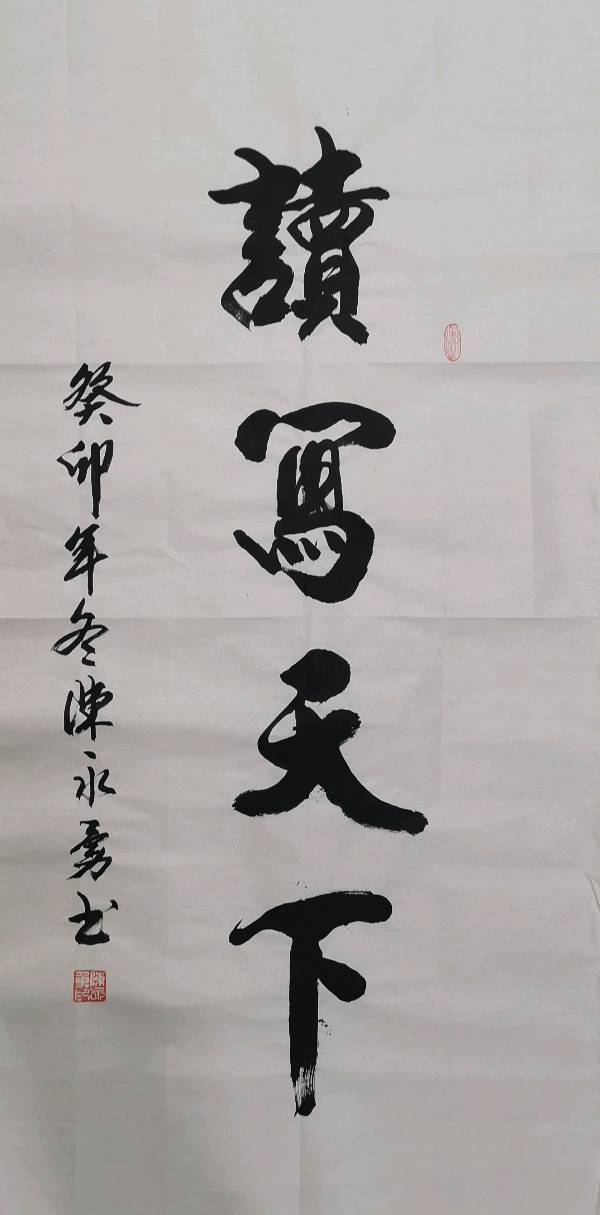 讀寫天下
癸卯年冬陳永勇書